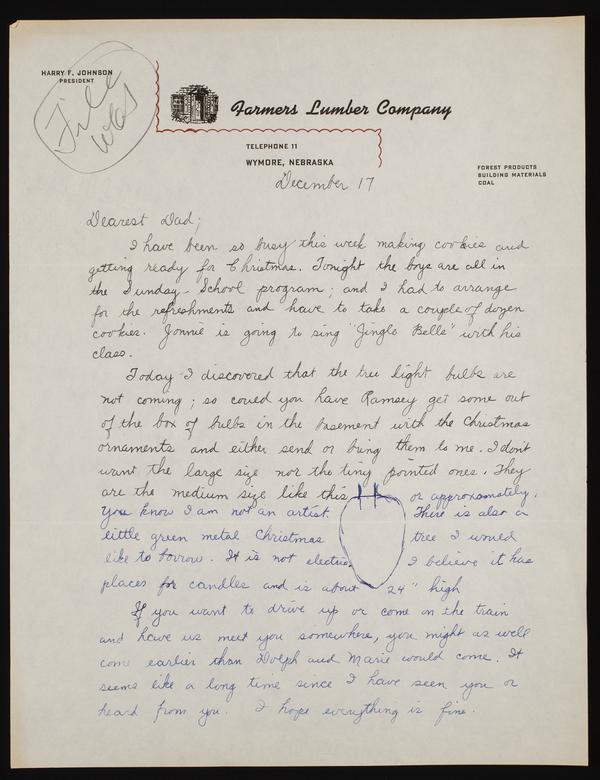 HARRY F. JOHNSON
PRESIDENT
File
Farmers Lumber Company
TELEPHONE 11
WYMORE, NEBRASKA
FOREST PRODUCTS
BUILDING MATERIALS
COAL
December 17
Dearest Dad;
I have been so busy this week making cookies and
getting ready for Christmas. Tonight the boys are all in
the Sunday-School program; and I had to arrange
for the refreshments and have to take a couple of dozen
cookies. Jonnie is going to sing "Jingle Bells" with his
class.
Today I discovered that the tree light bulbs are
not coming; so could you have Ramsey get some out
of the box of bulbs in the basement with the Christmas
ornaments and either send or bring them to me. I don't
want the large size nor the tiny pointed ones. They
are the medium size like this or approxomately.
You know I am not an artist. There is also a
little green metal Christmas tree I would
like to borrow. It is not electric I believe it has
places for candles and is about 24" high
If you want to drive up or come on the train
and have us meet you somewhere, you might as well
come earlier than Dolph and Marie would come. It
seems like a long time since I have seen you or
heard from you. I hope everything is fine.